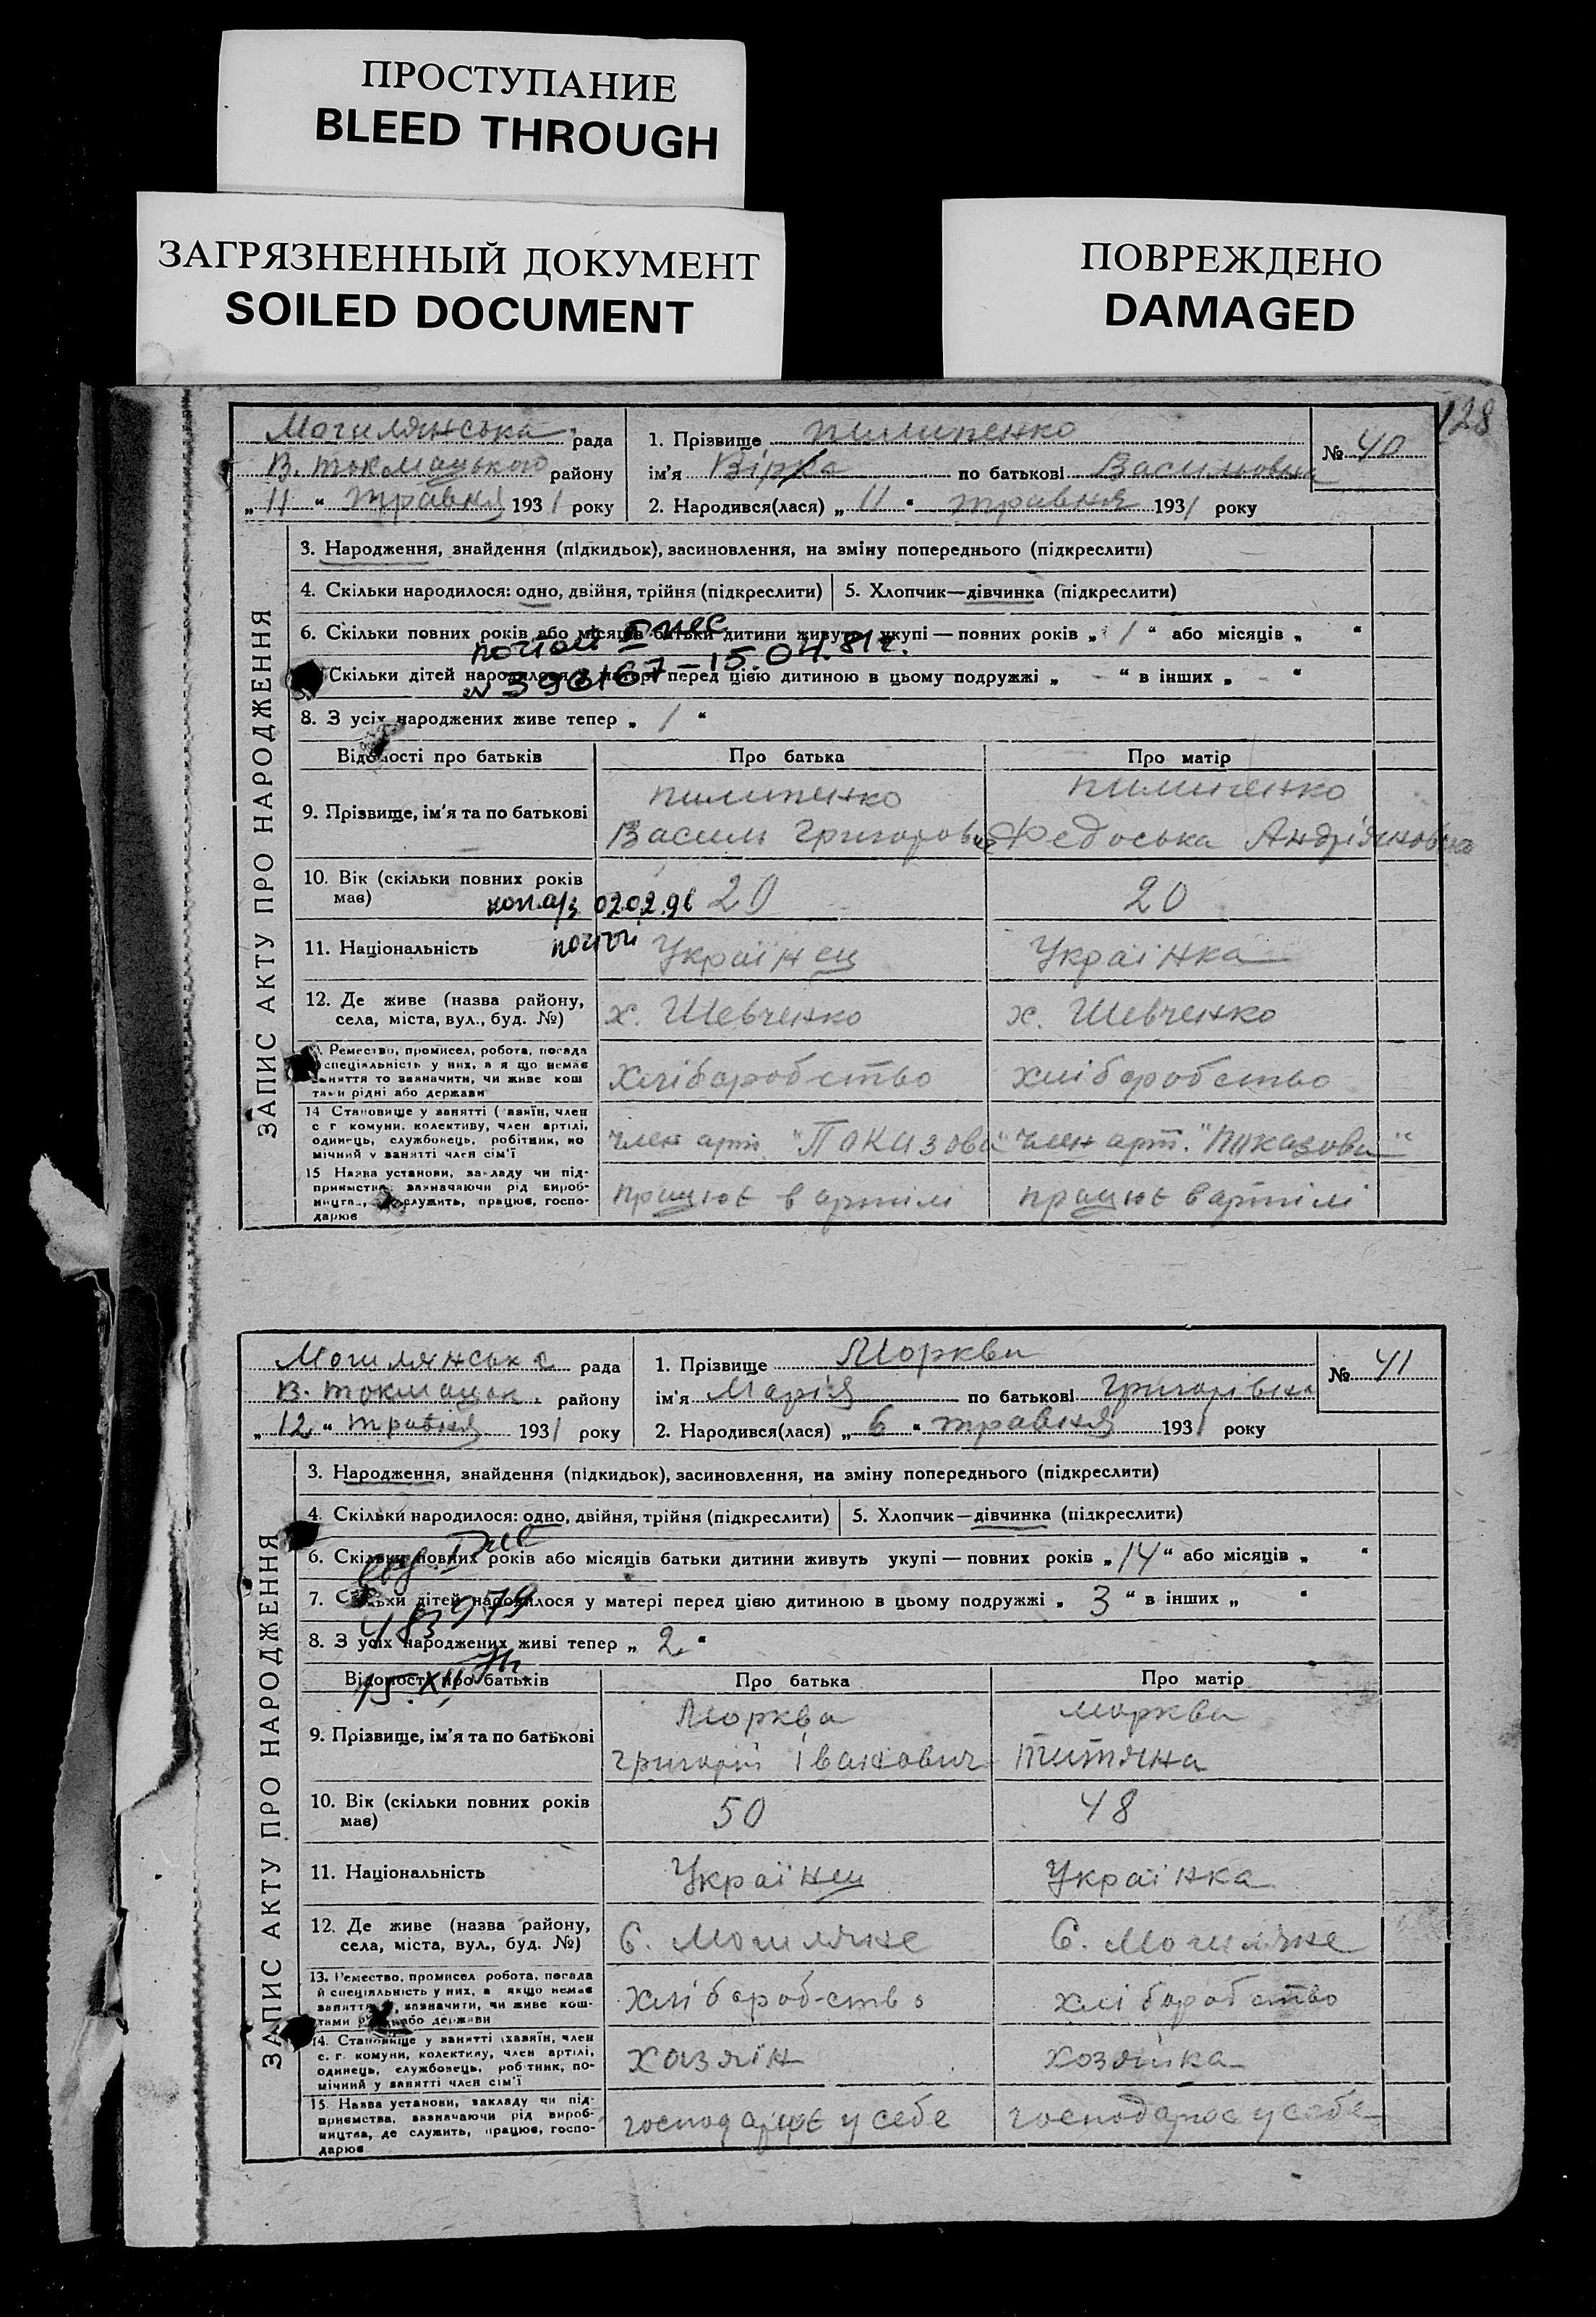 ПРОСТУПАНИЕ
BLEED THROUGH
ЗАГРЯЗНЕННЫЙ ДОКУМЕНТ
SOILED DOCUMENT
ПОВРЕЖДЕНО
DAMAGED
128
ЗАПИС АКТУ ПРО НАРОДЖЕННЯ
Могилянська рада
В. Токмацького району
„ 11 “ травня 1931 року
1. Прізвище Пилипенко
ім’я Вірка по батькові Васильовна
2. Народився(лася) „ 11 “ травня 1931 року
№ 40
3. Народження, знайдення (підкидьок), засиновлення, на зміну попереднього (підкреслити)
4. Скільки народилося: одно, двійня, трійня (підкреслити)
5. Хлопчик—дівчинка (підкреслити)
6. Скільки повних років або місяців батьки дитини живуть укупі — повних років „ 1 “ або місяців „ “
Скільки дітей народилося у матері перед цією дитиною в цьому подружжі „ - “ в інших „ - “
396167 – 15.04.81г.
8. З усіх народжених живе тепер „ 1 “
Відомості про батьків
Про батька
Про матір
9. Прізвище, ім’я та по батькові
Пилипенко
Василь Григорович
Пилипенко
Федоська Андріяновна
10. Вік (скільки повних років
має)
02.02.96
20
20
11. Національність
Українец
Українка
12. Де живе (назва району,
села, міста, вул., буд. №)
х. Шевченко
х. Шевченко
Ремество, промисел, робота, посада
спеціяльність у них, а я що немає
заняття то зазначити, чи живе кош
тами рідні або держави
Хліборобство
хліборобство
14 Становище у занятті (хазяїн, член
с г комуни, колективу, член артілі,
одинець, службовець, робітник, по
мічний у занятті член сім’ї
член арт. "Показова"
член арт. "Показова"
15 Назва установи, закладу чи під-
приємства, зазначаючи рід вироб-
ництва, де служить, працює, госпо-
дарює
працює в артілі
працює в артілі
ЗАПИС АКТУ ПРО НАРОДЖЕННЯ
Могилянська рада
В. Токмацьк. району
„ 12 “ травня 1931 року
1. Прізвище Морква
ім’я Марія по батькові Григорівна
2. Народився(лася) „ 6 “ травня 1931 року
№ 41
3. Народження, знайдення (підкидьок), засиновлення, на зміну попереднього (підкреслити)
4. Скільки народилося: одно, двійня, трійня (підкреслити)
5. Хлопчик—дівчинка (підкреслити)
6. Скільки повних років або місяців батьки дитини живуть укупі — повних років „ 14 “ або місяців „ “
7. Скільки дітей народилося у матері перед цією дитиною в цьому подружжі „ 3 “ в інших „ “
8. З усіх народжених живі тепер „ 2 “
Відомості про батьків
Про батька
Про матір
9. Прізвище, ім’я та по батькові
Морква
Григорій Іванович
Морква
Титяна
10. Вік (скільки повних років
має)
50
48
11. Національність
Українец
Українка
12. Де живе (назва району,
села, міста, вул., буд. №)
С. Могиляне
С. Могиляне
13. Ремество, промисел робота, посада
й спеціяльність у них, а якщо немає
заняття зазначити, чи живе кош-
тами рідні або держави
хліборобство
хліборобство
14. Становище у занятті (хазяїн, член
с. г. комуни, колективу, член артілі,
одинець, службовець, робітник, по-
мічний у занятті член сім’ї
хазяїн
хозяйка
15. Назва установи, закладу чи під-
приємства, зазначаючи рід вироб-
ництва, де служить, працює, госпо-
дарює
господарює у себе
господарює у себе